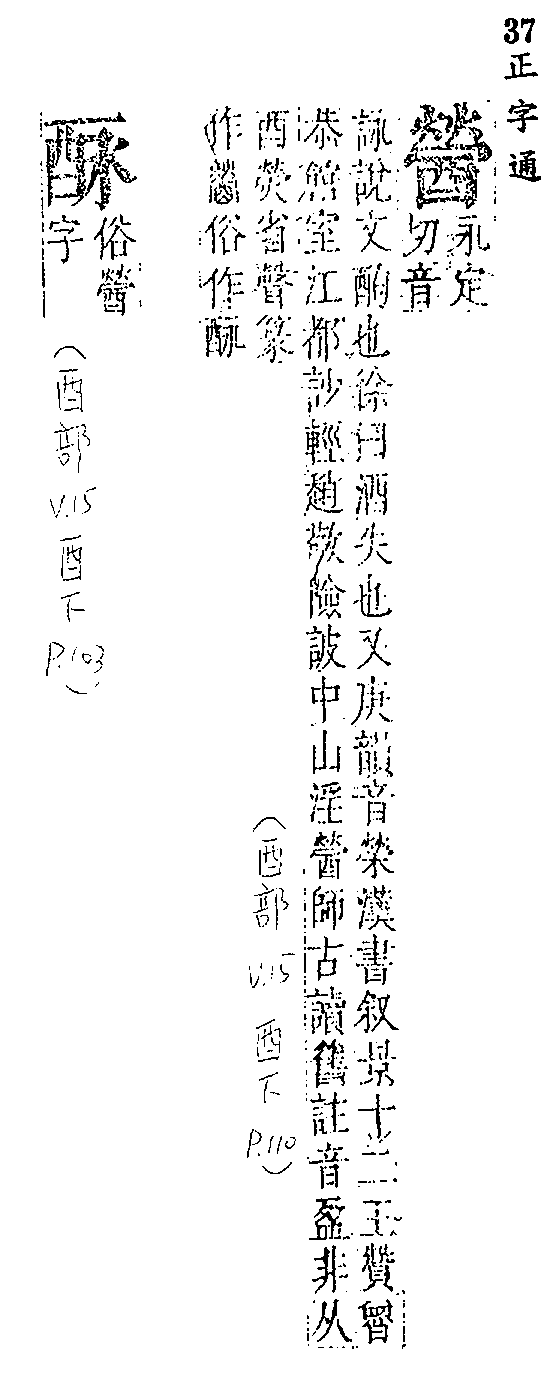 37 正字通
醟
永定
切音
詠說文酌也徐曰酒失也又庚韻音榮漢書叙景十三王贊魯
恭館室江都訬輕趙敬險詖中山淫醟師古讀舊註音盈非从
酉熒省聲篆
作俗作
（酉部 V.15 酉下 P.110）
俗醟
字
（酉部 V.15 酉下 P.103）